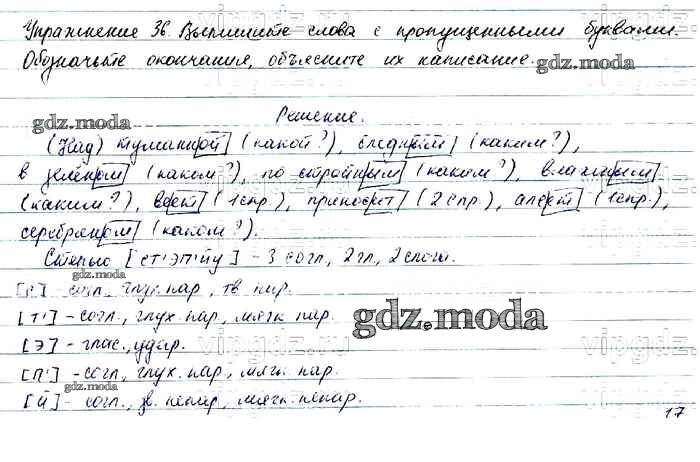 Упражнение 36. Выпишите слова с пропущенными буквами.
Обозначьте окончания, объясните их написание.
gdz.moda
Решение.
gdz.moda
(Над) туманной (какой?), бледным (каким?),
в зелёном (каком?), по стройным (каким?), влажным
(каким?), веет (1 спр.), приносит (2 спр.), алеет (1 спр.),
серебряном (каком?).
Степью [ст'эп'йу] - 3 согл, 2 гл., 2 слога.
gdz.moda
[с] - согл., глух. пар., тв. пар.
[т'] - согл., глух. пар., мягк. пар.
gdz.moda
[э] - глас., удар.
[п'] - согл., глух. пар., мягк. пар.
gdz.moda
[й] - согл., зв. непар., мягк. непар.
17